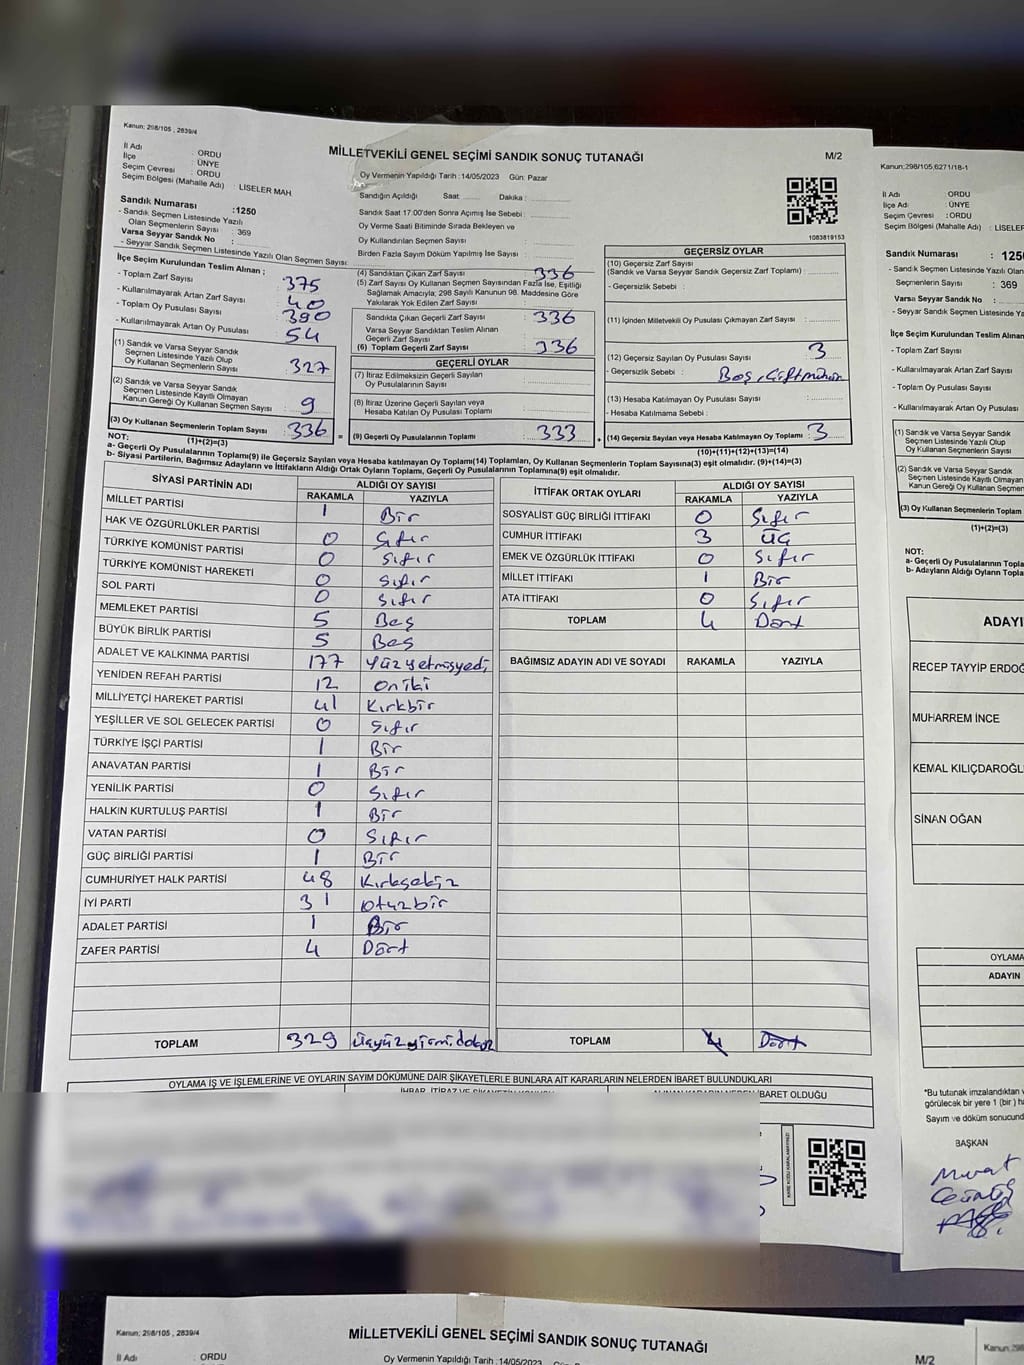 Kanun; 298/105 , 2839/4
İl Adı : ORDU
İlçe : ÜNYE
Seçim Çevresi : ORDU
Seçim Bölgesi (Mahalle Adı) : LİSELER MAH.
MİLLETVEKİLİ GENEL SEÇİMİ SANDIK SONUÇ TUTANAĞI
M/2
Oy Vermenin Yapıldığı Tarih : 14/05/2023 Gün: Pazar
Sandığın Açıldığı Saat Dakika :
Sandık Saat 17:00'den Sonra Açımış İse Sebebi :
Oy Verme Saati Bitiminde Sırada Bekleyen ve
Oy Kullandırılan Seçmen Sayısı :
Birden Fazla Sayım Döküm Yapılmış İse Sayısı :
1083819153
Sandık Numarası :1250
- Sandık Seçmen Listesinde Yazılı
Olan Seçmenlerin Sayısı : 369
Varsa Seyyar Sandık No :
- Seyyar Sandık Seçmen Listesinde Yazılı Olan Seçmen Sayısı :
İlçe Seçim Kurulundan Teslim Alınan ;
- Toplam Zarf Sayısı : 375
- Kullanılmayarak Artan Zarf Sayısı : 40
- Toplam Oy Pusulası Sayısı : 390
- Kullanılmayarak Artan Oy Pusulası : 54
(1) Sandık ve Varsa Seyyar Sandık
Seçmen Listesinde Yazılı Olup
Oy Kullanan Seçmenlerin Sayısı : 327
(2) Sandık ve Varsa Seyyar Sandık
Seçmen Listesinde Kayıtlı Olmayan
Kanun Gereği Oy Kullanan Seçmen Sayısı : 9
(3) Oy Kullanan Seçmenlerin Toplam Sayısı : 336 =
(1)+(2)=(3)
(4) Sandıktan Çıkan Zarf Sayısı : 336
(5) Zarf Sayısı Oy Kullanan Seçmen Sayısından Fazla İse, Eşitliği
Sağlamak Amacıyla; 298 Sayılı Kanunun 98. Maddesine Göre
Yakılarak Yok Edilen Zarf Sayısı :
Sandıkta Çıkan Geçerli Zarf Sayısı : 336
Varsa Seyyar Sandıktan Teslim Alınan
Geçerli Zarf Sayısı :
(6) Toplam Geçerli Zarf Sayısı : 336
GEÇERLİ OYLAR
(7) İtiraz Edilmeksizin Geçerli Sayılan
Oy Pusulalarının Sayısı :
(8) İtiraz Üzerine Geçerli Sayılan veya
Hesaba Katılan Oy Pusulası Toplamı :
(9) Geçerli Oy Pusulalarının Toplamı : 333 +
GEÇERSİZ OYLAR
(10) Geçersiz Zarf Sayısı
(Sandık ve Varsa Seyyar Sandık Geçersiz Zarf Toplamı) :
- Geçersizlik Sebebi :
(11) İçinden Milletvekili Oy Pusulası Çıkmayan Zarf Sayısı :
(12) Geçersiz Sayılan Oy Pusulası Sayısı : 3
- Geçersizlik Sebebi : Boş, Çift mühür
(13) Hesaba Katılmayan Oy Pusulası Sayısı :
- Hesaba Katılmama Sebebi :
(14) Geçersiz Sayılan veya Hesaba Katılmayan Oy Toplamı : 3
(10)+(11)+(12)+(13)=(14)
NOT:
a- Geçerli Oy Pusulalarının Toplamı(9) ile Geçersiz Sayılan veya Hesaba katılmayan Oy Toplamı(14) Toplamları, Oy Kullanan Seçmenlerin Toplam Sayısına(3) eşit olmalıdır. (9)+(14)=(3)
b- Siyasi Partilerin, Bağımsız Adayların ve İttifakların Aldığı Ortak Oyların Toplamı, Geçerli Oy Pusulalarının Toplamına(9) eşit olmalıdır.
SİYASİ PARTİNİN ADI ALDIĞI OY SAYISI
RAKAMLA YAZIYLA
MİLLET PARTİSİ 1 Bir
HAK VE ÖZGÜRLÜKLER PARTİSİ 0 Sıfır
TÜRKİYE KOMÜNİST PARTİSİ 0 Sıfır
TÜRKİYE KOMÜNİST HAREKETİ 0 Sıfır
SOL PARTİ 0 Sıfır
MEMLEKET PARTİSİ 5 Beş
BÜYÜK BİRLİK PARTİSİ 5 Beş
ADALET VE KALKINMA PARTİSİ 177 Yüzyetmişyedi
YENİDEN REFAH PARTİSİ 12 Oniki
MİLLİYETÇİ HAREKET PARTİSİ 41 Kırkbir
YEŞİLLER VE SOL GELECEK PARTİSİ 0 Sıfır
TÜRKİYE İŞÇİ PARTİSİ 1 Bir
ANAVATAN PARTİSİ 1 Bir
YENİLİK PARTİSİ 0 Sıfır
HALKIN KURTULUŞ PARTİSİ 1 Bir
VATAN PARTİSİ 0 Sıfır
GÜÇ BİRLİĞİ PARTİSİ 1 Bir
CUMHURİYET HALK PARTİSİ 48 Kırksekiz
İYİ PARTİ 31 Otuzbir
ADALET PARTİSİ 1 Bir
ZAFER PARTİSİ 4 Dört
TOPLAM 329 Üçyüzyirmidokuz
İTTİFAK ORTAK OYLARI ALDIĞI OY SAYISI
RAKAMLA YAZIYLA
SOSYALİST GÜÇ BİRLİĞİ İTTİFAKI 0 Sıfır
CUMHUR İTTİFAKI 3 Üç
EMEK VE ÖZGÜRLÜK İTTİFAKI 0 Sıfır
MİLLET İTTİFAKI 1 Bir
ATA İTTİFAKI 0 Sıfır
TOPLAM 4 Dört
BAĞIMSIZ ADAYIN ADI VE SOYADI RAKAMLA YAZIYLA
TOPLAM 4 Dört
OYLAMA İŞ VE İŞLEMLERİNE VE OYLARIN SAYIM DÖKÜMÜNE DAİR ŞİKAYETLERLE BUNLARA AİT KARARLARIN NELERDEN İBARET BULUNDUKLARI
İBARET OLDUĞU
Kanun;298/105,6271/18-1
İl Adı : ORDU
İlçe Adı : ÜNYE
Seçim Çevresi : ORDU
Seçim Bölgesi (Mahalle Adı) : LİSELER
Sandık Numarası : 1250
- Sandık Seçmen Listesinde Yazılı
Seçmenlerin Sayısı : 369
Varsa Seyyar Sandık No :
- Seyyar Sandık Seçmen Listesinde Yazılı
İlçe Seçim Kurulundan Teslim Alınan
- Toplam Zarf Sayısı
- Kullanılmayarak Artan Zarf Sayısı
- Toplam Oy Pusulası Sayısı
- Kullanılmayarak Artan Oy Pusulası
(1) Sandık ve Varsa Seyyar Sandık
Seçmen Listesinde Yazılı Olup
Oy Kullanan Seçmenlerin Sayısı
(2) Sandık ve Varsa Seyyar Sandık
Seçmen Listesinde Kayıtlı Olmayan
Kanun Gereği Oy Kullanan Seçmen
(3) Oy Kullanan Seçmenlerin Toplam
(1)+(2)=(3)
NOT:
a- Geçerli Oy Pusulalarının Toplam
b- Adayların Aldığı Oyların Toplamı
ADAYI
RECEP TAYYİP ERDOĞ
MUHARREM İNCE
KEMAL KILIÇDAROĞL
SİNAN OĞAN
OYLAMA
ADAYIN
*Bu tutanak imzalandıktan
görülecek bir yere 1 (bir)
Sayım ve döküm sonucund
BAŞKAN
Murat
Kanun; 298/105 , 2839/4
İl Adı : ORDU
MİLLETVEKİLİ GENEL SEÇİMİ SANDIK SONUÇ TUTANAĞI
Oy Vermenin Yapıldığı Tarih : 14/05/2023
M/2
Kanun; 298